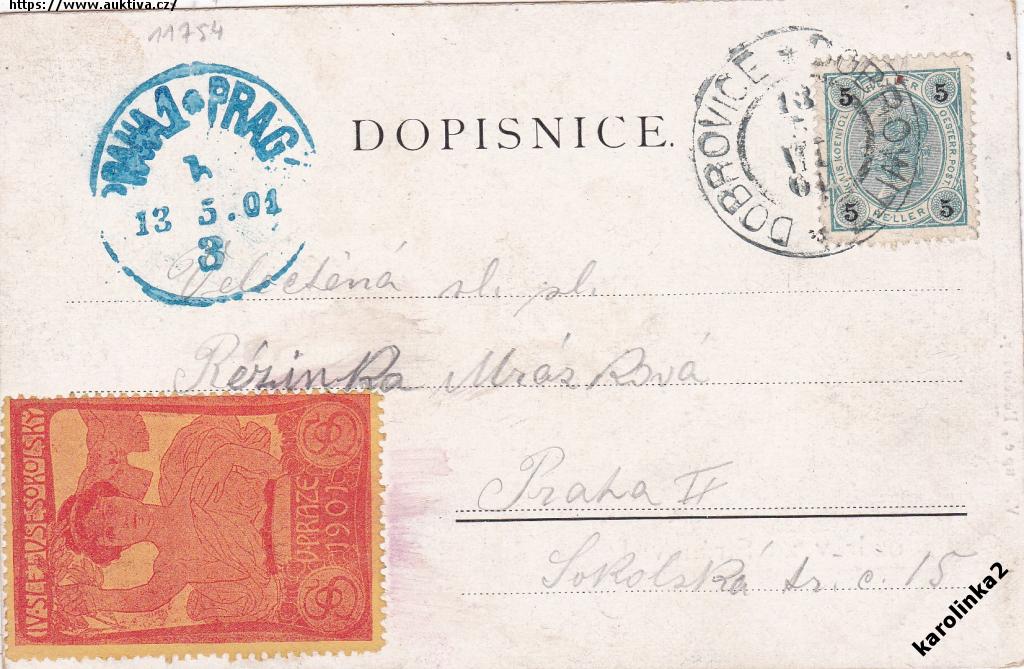 https://www.auktiva.cz/
11754
PRAHA 1 * PRAG
13 5.01
3
DOPISNICE.
DOBROVICE *
13
01
5 HELLER 5
5 HELLER 5
Velectěná sl. sl.
Rézinka Mrázková
Praha II
Sokolská tř. č. 15
IV. SLET VŠESOKOLSKÝ
V PRAZE
1901
karolinka2